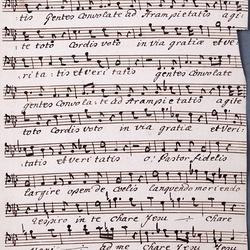 tis Gentes Convolate ad Aram pietatis agi
te toto Cordis voto in via gratiae et ve
ri ta: tis et Veri tatis gentes convolate
gentes Convola: te ad Aram pietatis agite
toto Cordis voto in via gratiae et Veri
tatis et Veri tatis o. Pastor fidelis
largire opem de Coelis languendo moriendo
respiro in te chare Jesu chare
ad me chare Jesu